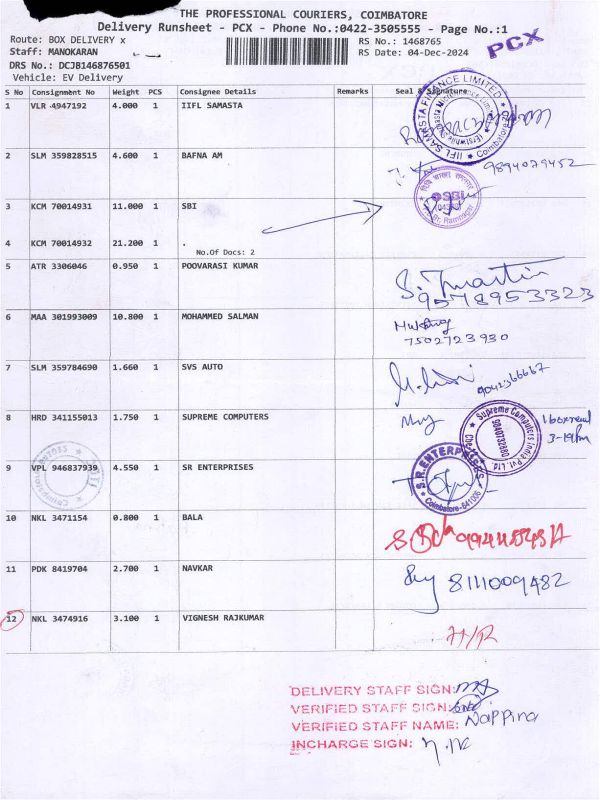 THE PROFESSIONAL COURIERS, COIMBATORE
Delivery Runsheet - PCX - Phone No.:0422-3505555 - Page No.:1
Route: BOX DELIVERY x RS No.: 1468765 PCX
Staff: MANOKARAN RS Date: 04-Dec-2024
DRS No.: DCJB146876501
Vehicle: EV Delivery
S No Consignment No Weight PCS Consignee Details Remarks Seal & Signature
1 VLR 4947192 4.000 1 IIFL SAMASTA
IIFL SAMASTA FINANCE LIMITED
Coimbatore
2 SLM 359828515 4.600 1 BAFNA AM 9894079452
3 KCM 70014931 11.000 1 SBI
SBI
Br. Ramnagar
4 KCM 70014932 21.200 1 .
No.Of Docs: 2
5 ATR 3306046 0.950 1 POOVARASI KUMAR
S. Martin
9578953323
6 MAA 301993009 10.800 1 MOHAMMED SALMAN
7502723930
7 SLM 359784690 1.660 1 SVS AUTO
9042366667
8 HRD 341155013 1.750 1 SUPREME COMPUTERS
Supreme Computers India Pvt.Ltd.
9 VPL 946837939 4.550 1 SR ENTERPRISES
S.R.ENTERPRISES
Coimbatore-641006
10 NKL 3471154 0.800 1 BALA
11 PDK 8419704 2.700 1 NAVKAR 8111009482
12 NKL 3474916 3.100 1 VIGNESH RAJKUMAR
DELIVERY STAFF SIGN:
VERIFIED STAFF SIGN:
VERIFIED STAFF NAME:
INCHARGE SIGN: